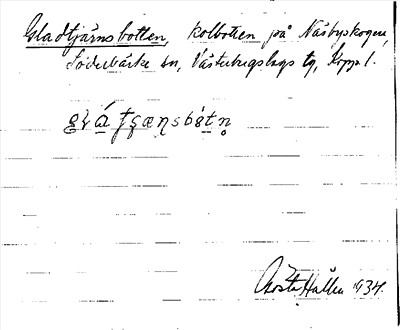 Gladtjärnsbotten, kolbotten på Näsbyskogen,
Söderbärke sn, Västerbergslags tg, Kopp. l.
Gösta Hallén 1934.